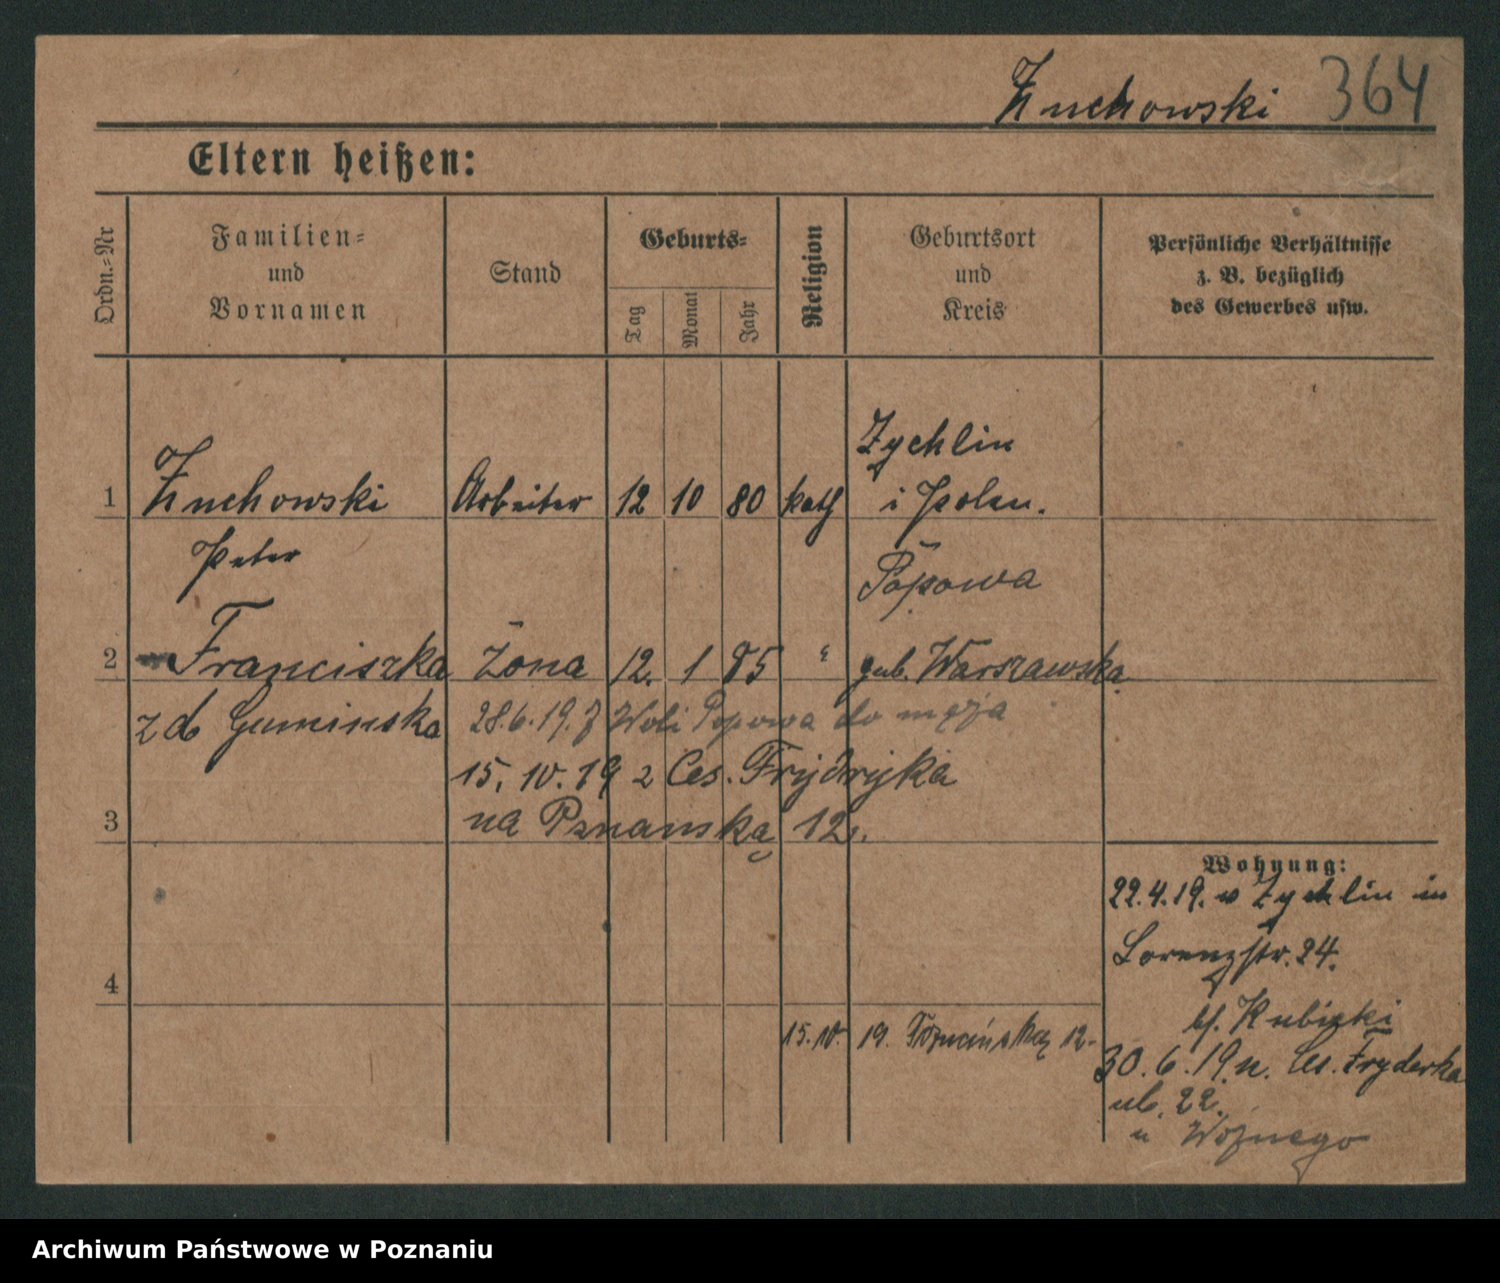 Żuchowski 364
Eltern heißen:
Ordn.-Nr
Familien-
und
Vornamen
Stand
Geburts-
Tag
Monat
Jahr
Religion
Geburtsort
und
Kreis
Persönliche Verhältnisse
z. B. bezüglich
des Gewerbes usw.
Zychlin
1 Żuchowski Arbeiter 12 10 80 kath i Polen.
Peter
Popowa
2 Franciszka Żona 12. 1 85 " gub. Warszawska
z d Guminska 28.6.19. z Woli Popowa do męża
15. 10. 19 z Ces. Frydryka
na Pznanska 12.
3
Wohnung:
22.4.19. w Zychlin in
Lorenzstr. 24.
4
bf. Kubizki
15.10. 19. Poznańską 12.
30.6.19. n. Ces. Fryderka
ul. 22.
u Woznego
Archiwum Państwowe w Poznaniu